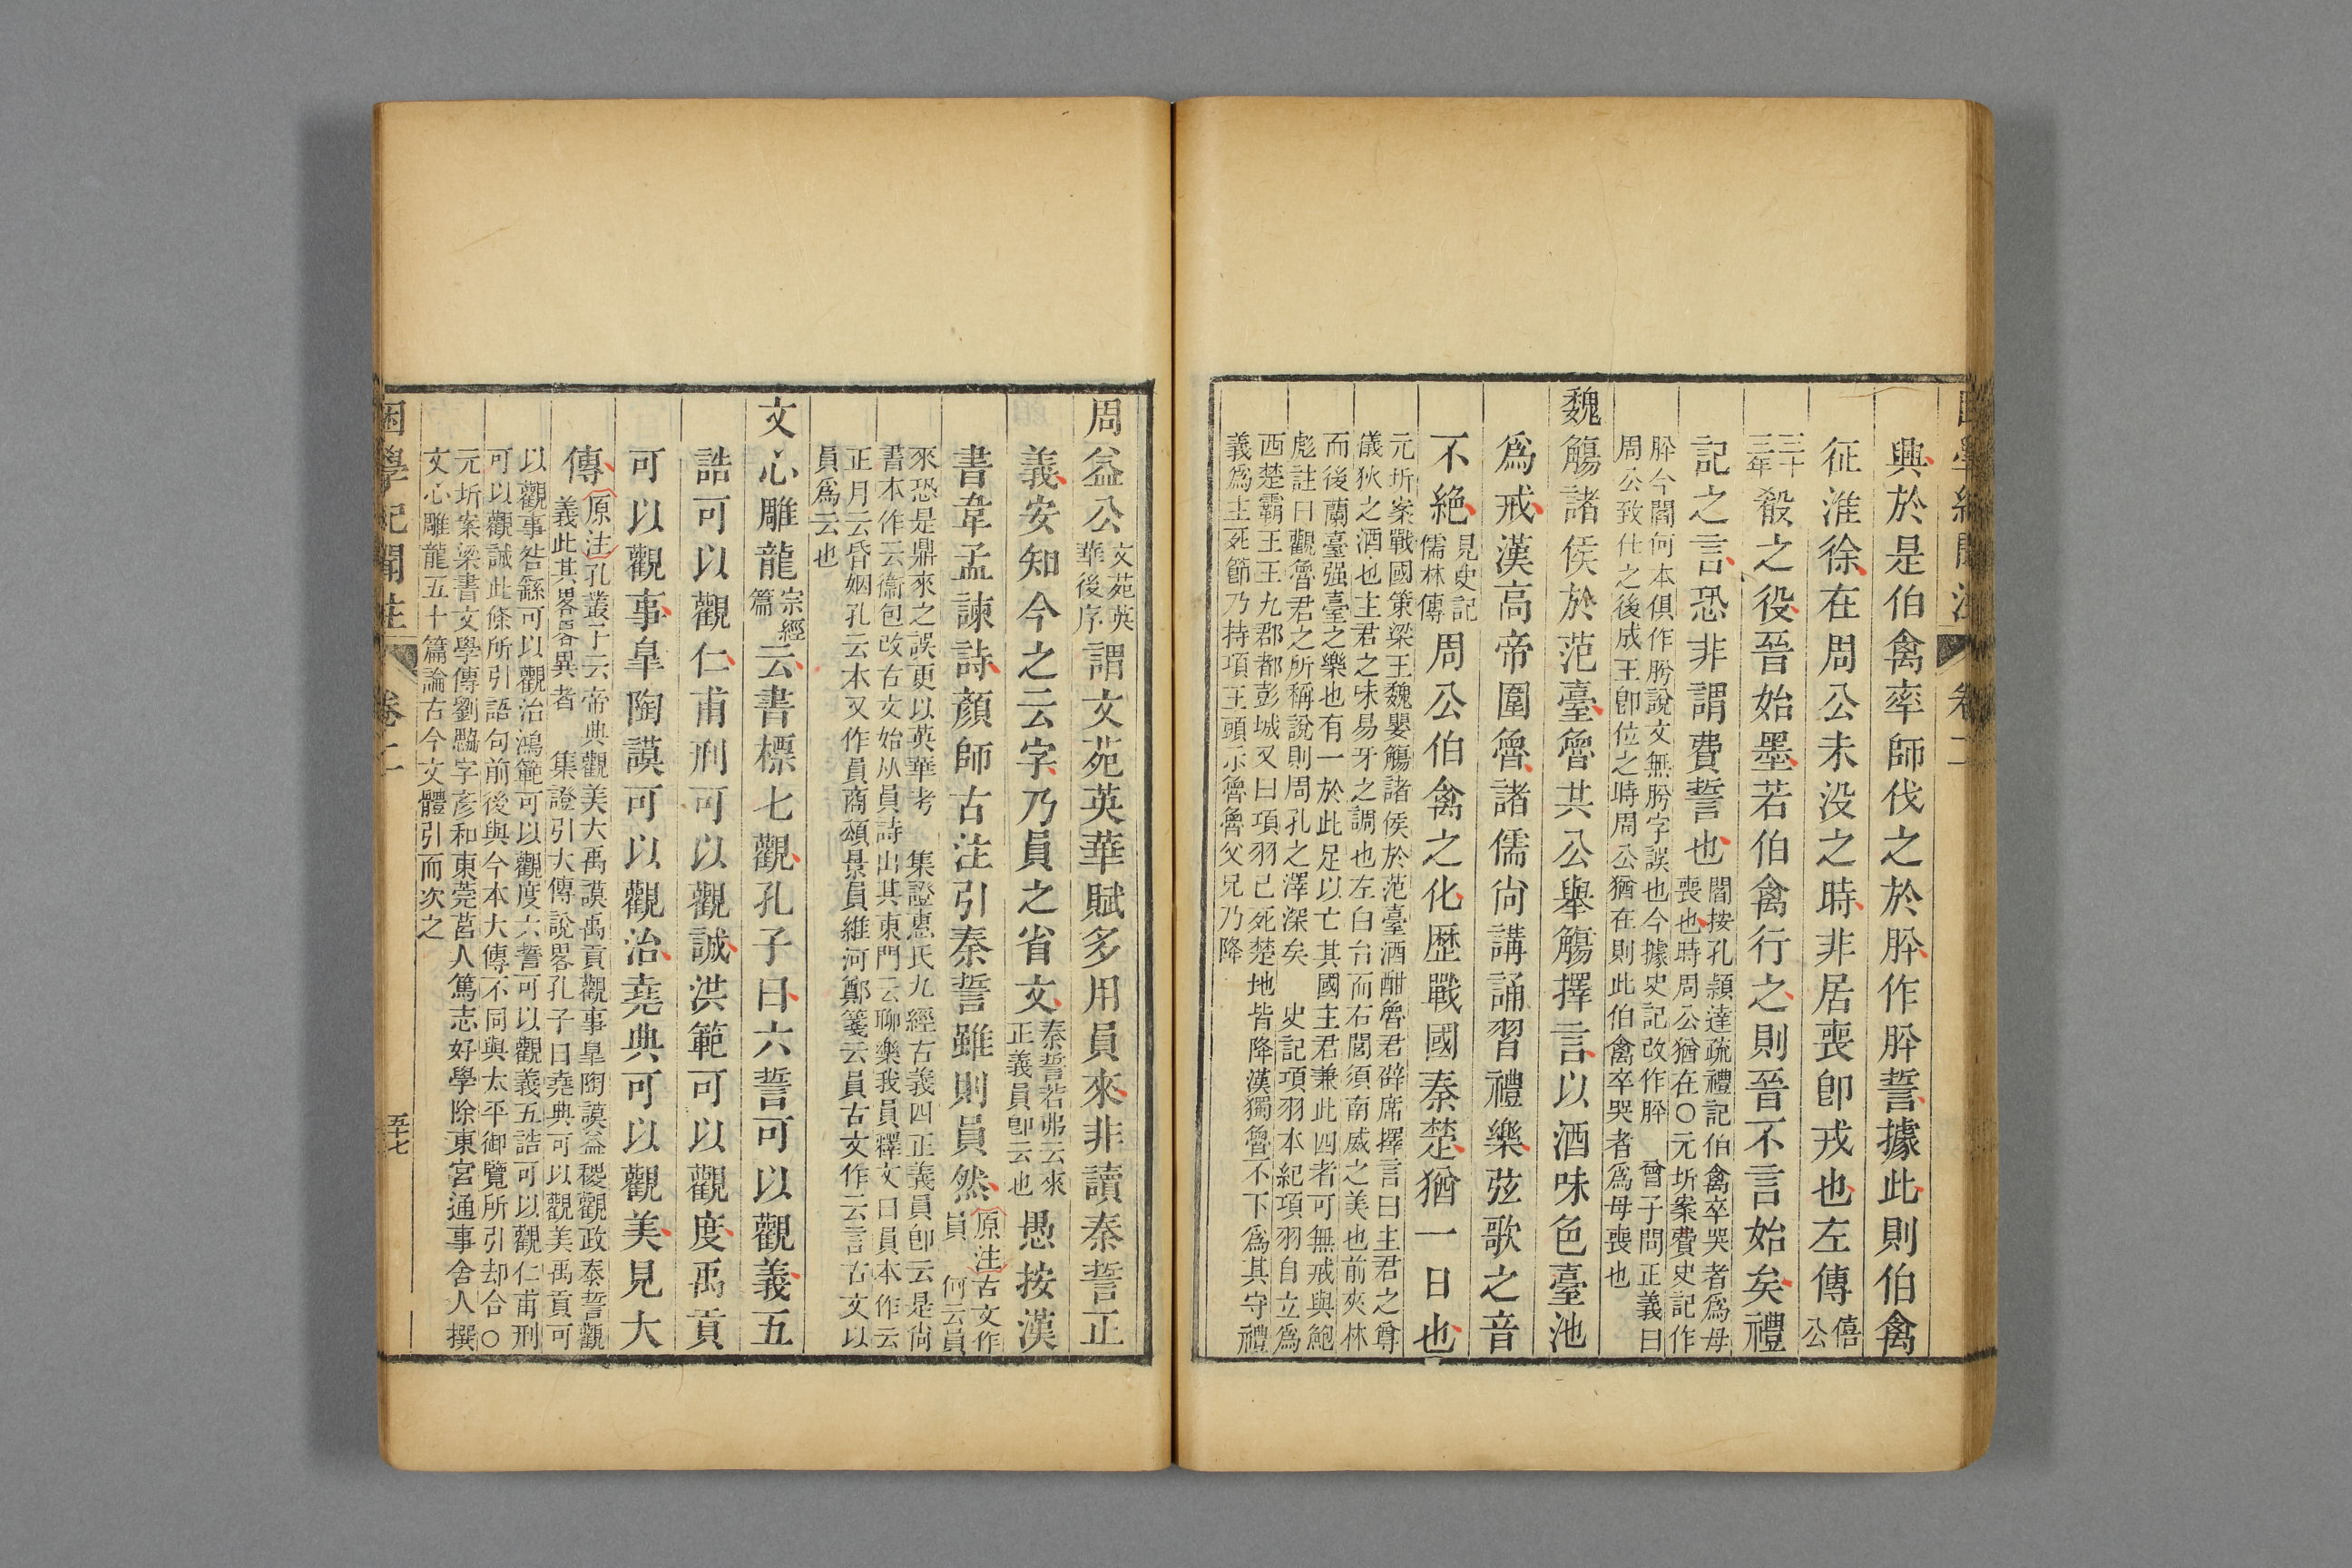 困學紀聞注 卷二
興於是伯禽率師伐之於肸作肸誓據此則伯禽
征淮徐在周公未没之時非居喪卽戎也左傳僖公
三十三年殽之役晉始墨若伯禽行之則晉不言始矣禮
記之言恐非謂費誓也閻按孔穎達疏禮記伯禽卒哭者爲母
喪也時周公猶在〇元圻案費史記作
肸今閻何本俱作肹說文無肹字誤也今據史記改作肸 曾子問正義曰
周公致仕之後成王卽位之時周公猶在則此伯禽卒哭者爲母喪也
魏觴諸侯於范臺魯共公舉觴擇言以酒味色臺池
爲戒漢高帝圍魯諸儒尚講誦習禮樂弦歌之音
不絶見史記儒林傳周公伯禽之化歷戰國秦楚猶一日也
元圻案戰國策梁王魏嬰觴諸侯於范臺酒酣魯君辟席擇言曰主君之尊
儀狄之酒也主君之味易牙之調也左白台而右閭須南威之美也前夾林
而後蘭臺强臺之樂也有一於此足以亡其國主君兼此四者可無戒與鮑
彪註曰觀魯君之所稱說則周孔之澤深矣 史記項羽本紀項羽自立爲
西楚霸王王九郡都彭城又曰項羽已死楚地皆降漢獨魯不下爲其守禮
義爲主死節乃持項王頭示魯魯父兄乃降
周益公文苑英華後序謂文苑英華賦多用員來非讀秦誓正
義安知今之云字乃員之省文秦誓若弗云來
正義員卽云也愚按漢
書韋孟諫詩顏師古注引秦誓雖則員然原注古文作
員 何云員
來恐是鼎來之誤更以英華考 集證惠氏九經古義四正義員卽云是尚
書本作云衞包改古文始从員詩出其東門云聊樂我員釋文曰員本作云
正月云昏姻孔云本又作員商頌景員維河鄭箋云員古文作云言古文以
員爲云也
文心雕龍宗經篇云書標七觀孔子曰六誓可以觀義五
誥可以觀仁甫刑可以觀誠洪範可以觀度禹貢
可以觀事臯陶謨可以觀治堯典可以觀美見大
傳原注孔叢子云帝典觀美大禹謨禹貢觀事臯陶謨益稷觀政泰誓觀
義此其畧畧異者 集證引大傳說畧孔子曰堯典可以觀美禹貢可
以觀事咎繇可以觀治鴻範可以觀度六誓可以觀義五誥可以觀仁甫刑
可以觀誠此條所引語句前後與今本大傳不同與太平御覽所引却合〇
元圻案梁書文學傳劉勰字彥和東莞莒人篤志好學除東宮通事舍人撰
文心雕龍五十篇論古今文體引而次之
困學紀聞注 卷二 五十七